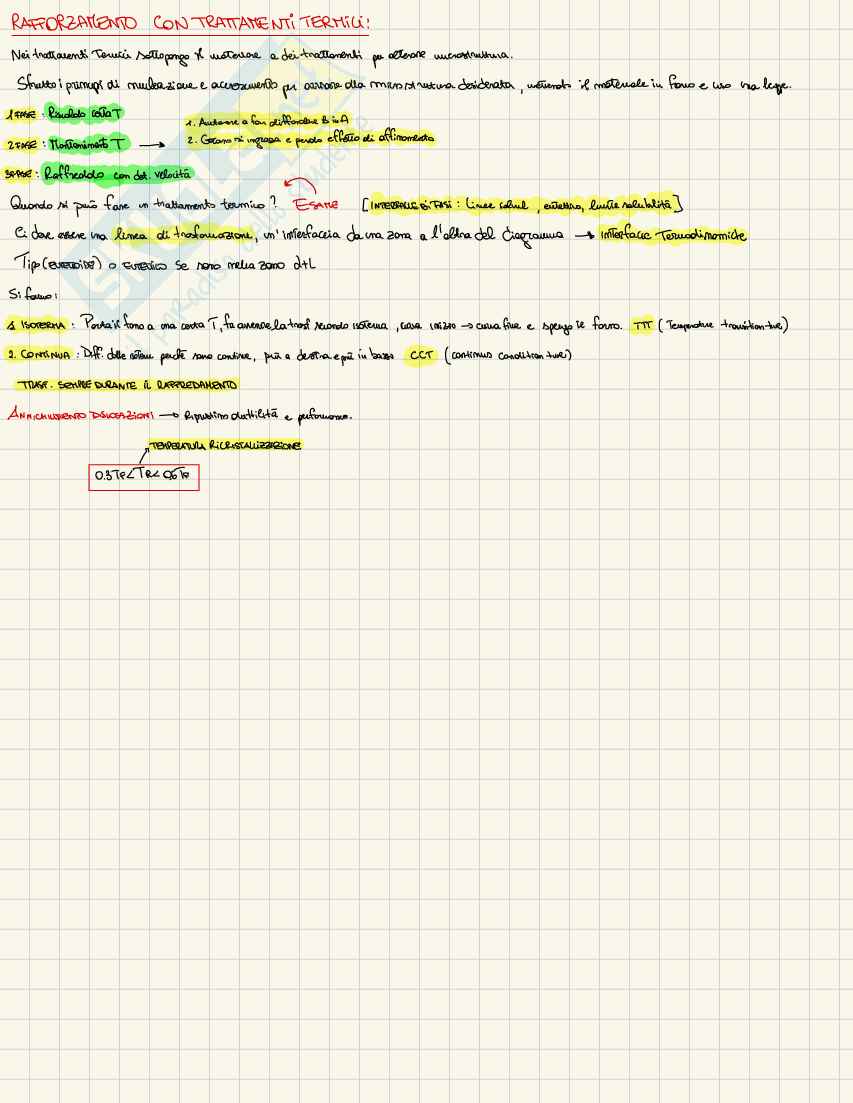 RAFFORZAMENTO CON TRATTAMENTI TERMICI:
Nei trattamenti Termici sottopongo il materiale a dei trattamenti per alterare microstruttura.
Sfrutto i principi di nucleazione e accrescimento per arrivare alla microstruttura desiderata, mettendo il materiale in forno e uso una legge.
1 FASE: Riscaldo certa T
2 FASE: Mantenimento T →
1. Autore a far diffondere B in A
2. Grano si ingrossa e perdo effetto di affinamento
3 FASE: Raffreddo con det. velocità
Quando si può fare un trattamento termico? ESAME [INTERFACCE DI FASI: Linee solvus, eutettico, limite solubilità]
Ci deve essere una linea di trasformazione, un'interfaccia da una zona a l'altra del diagramma → INTERFACCE TERMODINAMICHE
Tipo (EUTETTOIDE) o EUTETTICO se sono nella zona α+L
Si fanno:
1 ISOTERMA: Porta il forno a una certa T, fa avvenire la trasf secondo isoterma, curva inizio → curva fine e spengo il forno. TTT (Temperature transition time)
2. CONTINUA: Diff. dalle isoterme perché sono continue, più a destra e più in basso CCT (continuous condition time)
TRASF. SEMPRE DURANTE IL RAFFREDDAMENTO
ANNICHILIMENTO DISLOCAZIONI → Ripristino duttilità e performance.
TEMPERATURA RICRISTALLIZZAZIONE
0.3 TF < TR < 0.6 TF
SKUOLA.net
il paradiso dello studente